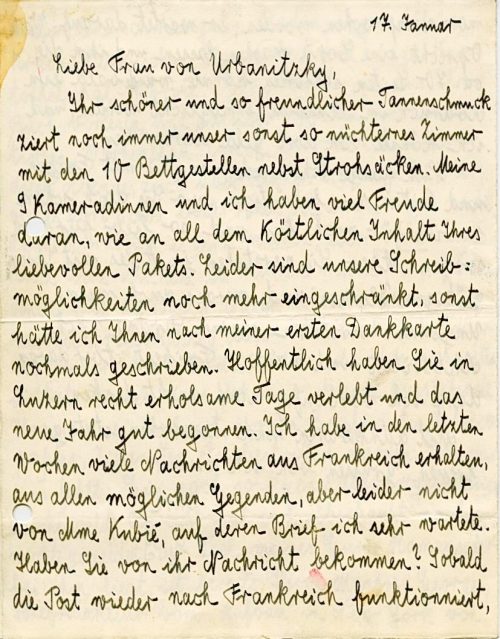 17. Januar
Liebe Frau von Urbanitzky,
Ihr schöner und so freundlicher Tannenschmuck
ziert noch immer unser sonst so nüchternes Zimmer
mit den 10 Bettgestellen nebst Strohsäcken. Meine
9 Kameradinnen und ich haben viel Freude
daran, wie an all dem Köstlichen Inhalt Ihres
liebevollen Pakets. Leider sind unsere Schreib-
möglichkeiten noch mehr eingeschränkt, sonst
hätte ich Ihnen nach meiner ersten Dankkarte
nochmals geschrieben. Hoffentlich haben Sie in
Luzern recht erholsame Tage verlebt und das
neue Jahr gut begonnen. Ich habe in den letzten
Wochen viele Nachrichten aus Frankreich erhalten,
aus allen möglichen Gegenden, aber leider nicht
von Mme Kubié, auf deren Brief ich sehr wartete.
Haben Sie von ihr Nachricht bekommen? Sobald
die Post wieder nach Frankreich funktionniert,